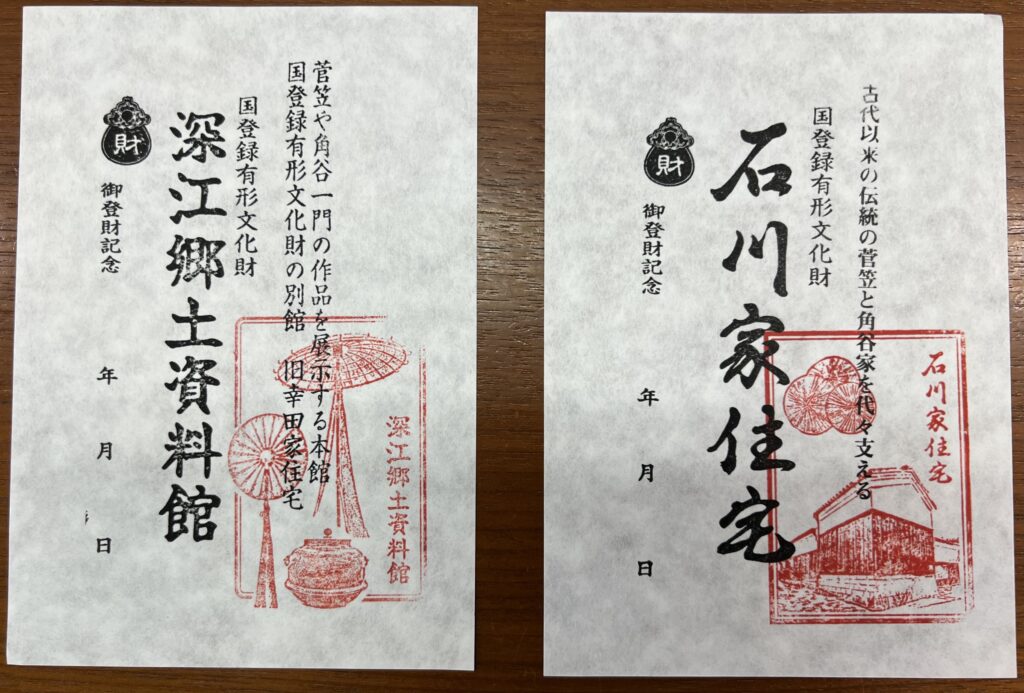 菅笠や角谷一門の作品を展示する本館
国登録有形文化財の別館 旧幸田家住宅
国登録有形文化財
深江郷土資料館
財
御登財記念
年 月 日
深江郷土資料館
古代以来の伝統の菅笠と角谷家を代々支える
国登録有形文化財
石川家住宅
財
御登財記念
年 月 日
石川家住宅